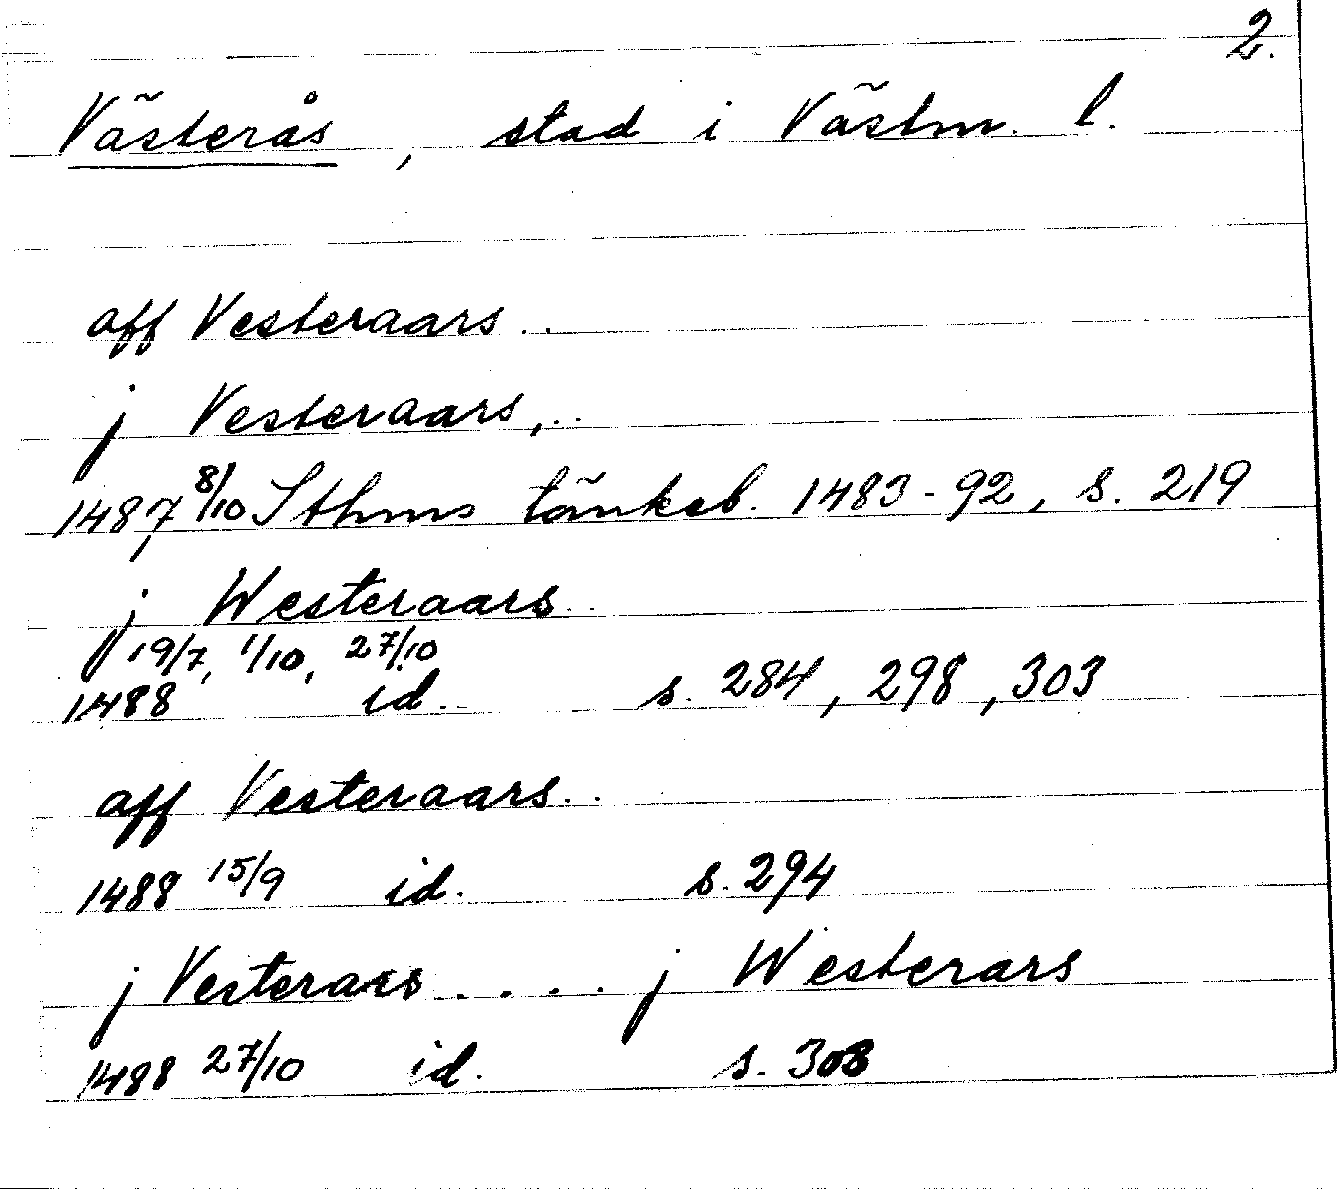 2.
Västerås, stad i Västm. l.
aff Vesteraars..
j Vesteraars,..
1487 8/10 Sthms tänkeb. 1483-92, s. 219
j Westeraars..
19/7, 1/10, 27/10
1488 id. s. 284, 298, 303
aff Vesteraars..
1488 15/9 id. s. 294
j Vesterars.... j Westerars
1488 27/10 id. s. 303